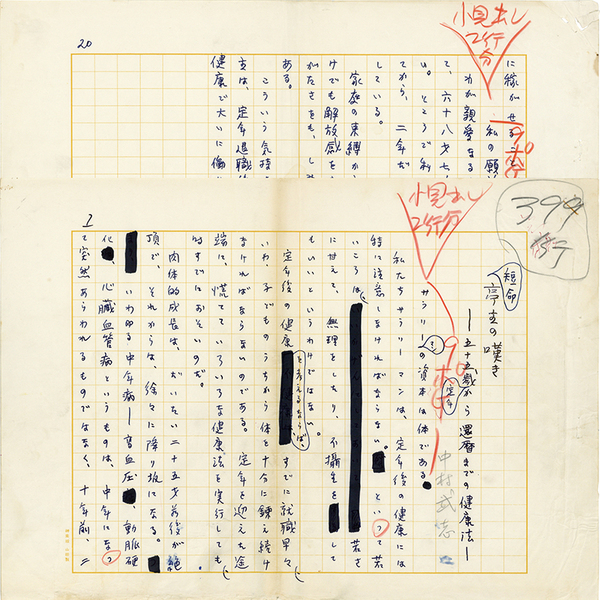 20
小見出し
2行分
に嫁がせること
私の願
わが親愛なる
て、六十八才七
い。ところで私
てから、二年だ
している。
家庭の束縛か
けでも解放感を
がたさをも、し
ある。
こういう気持
主は、定年退職
健康で大いに働
1
399行
小見出し
2行分
短命
亭主の嘆き
―五十五歳から還暦までの健康法―
中村武志
サラリーマンの資本は体である
私たちサラリーマンは、定年後の健康には
特に注意しなければならない。といって若
いころは、若さ
に甘えて、無理をしたり、不摂生をして
もいいというわけではない。
定年後の健康を考えるならば、すでに就職早々
いわゆる
から体を十分に鍛え続け
なければならないのである。定年を迎えた途
端に、慌てていろいろな健康法を実行しても、
時すでにおそいのだ。
肉体的成長は、だいたい二十五才前後が絶
頂で、それからは、徐々に降り坂になる。
いわゆる中年病―高血圧、動脈硬
化、心臓血管病というものは、中年になっ
て突然あらわれるものではなく、十年前、二